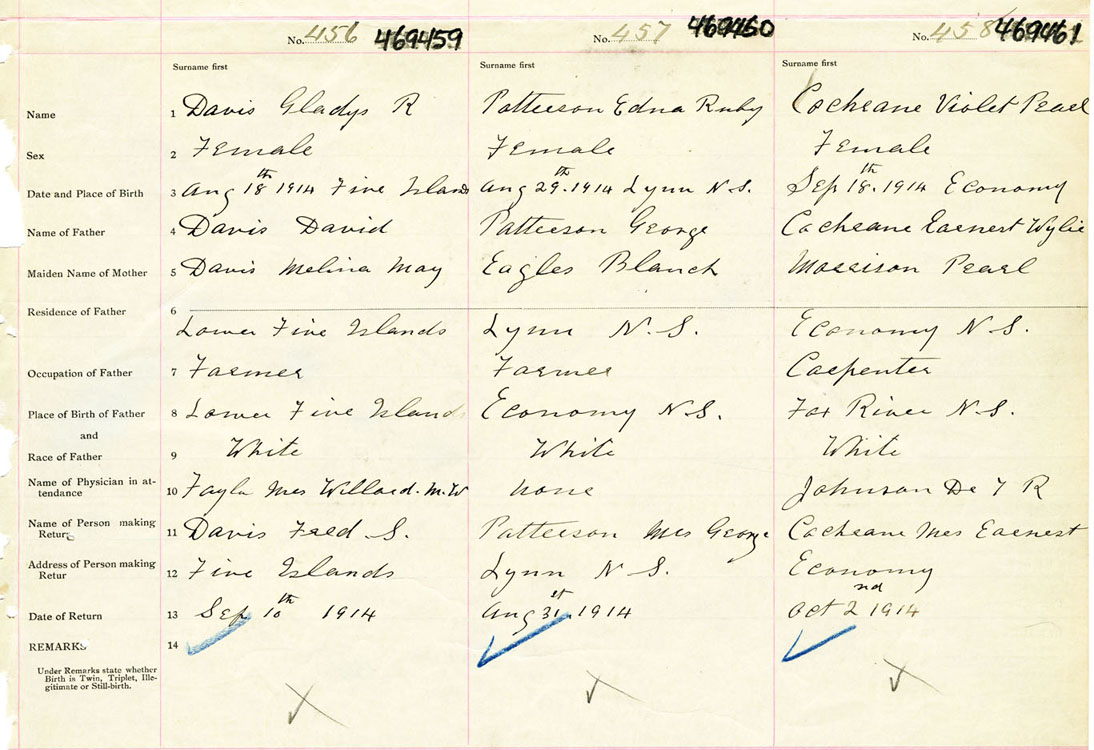 No. 456 469459 No. 457 469460 No. 458 469461
Surname first Surname first Surname first
Name 1 Davis Gladys R Patterson Edna Ruby Cochrane Violet Pearl
Sex 2 Female Female Female
Date and Place of Birth 3 Aug 18th 1914 Five Islands Aug 29th 1914 Lynn N.S. Sep 18th 1914 Economy
Name of Father 4 Davis David Patterson George Cochrane Earnest Wylie
Maiden Name of Mother 5 Davis Melina May Eagles Blanch Morrison Pearl
Residence of Father 6
Lower Five Islands Lynn N.S. Economy N.S.
Occupation of Father 7 Farmer Farmer Carpenter
Place of Birth of Father 8 Lower Five Islands Economy N.S. Fox River N.S.
and
Race of Father 9 White White White
Name of Physician in at-
tendance 10 Mrs Willard. M.W none Johnson Dr T R
Name of Person making
Return 11 Davis Fred S. Patterson Mrs George Cochrane Mrs Earnest
Address of Person making
Retur 12 Five Islands Lynn N S. Economy
Date of Return 13 Sep 10th 1914 Aug 31st 1914 Oct 2nd 1914
REMARKS 14
Under Remarks state whether
Birth is Twin, Triplet, Ille-
gitimate or Still-birth.